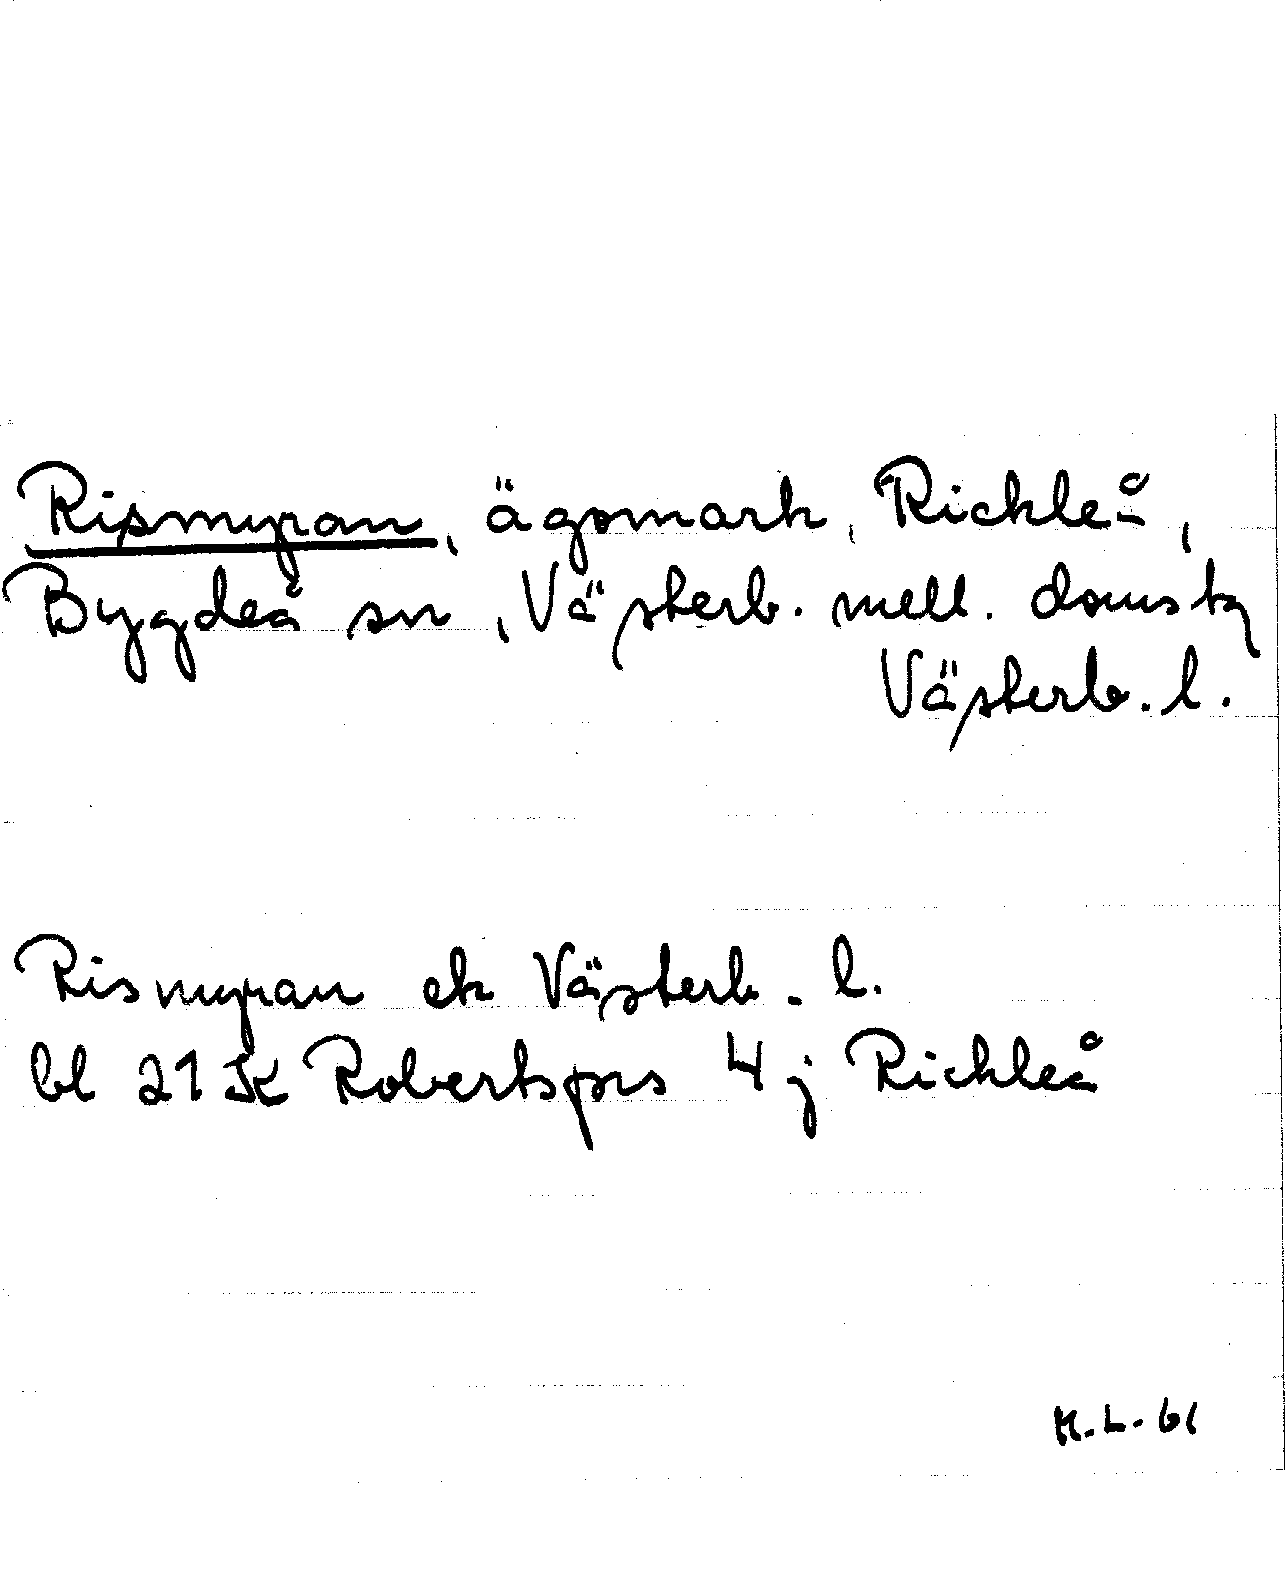 Rismyran, ägomark, Rickleå,
Bygdeå sn, Västerb. mell. domstg
Västerb. l.
Rismyran ek Västerb. l.
bl 21 K Robertsfors 4 j Rickleå
M.L. 61